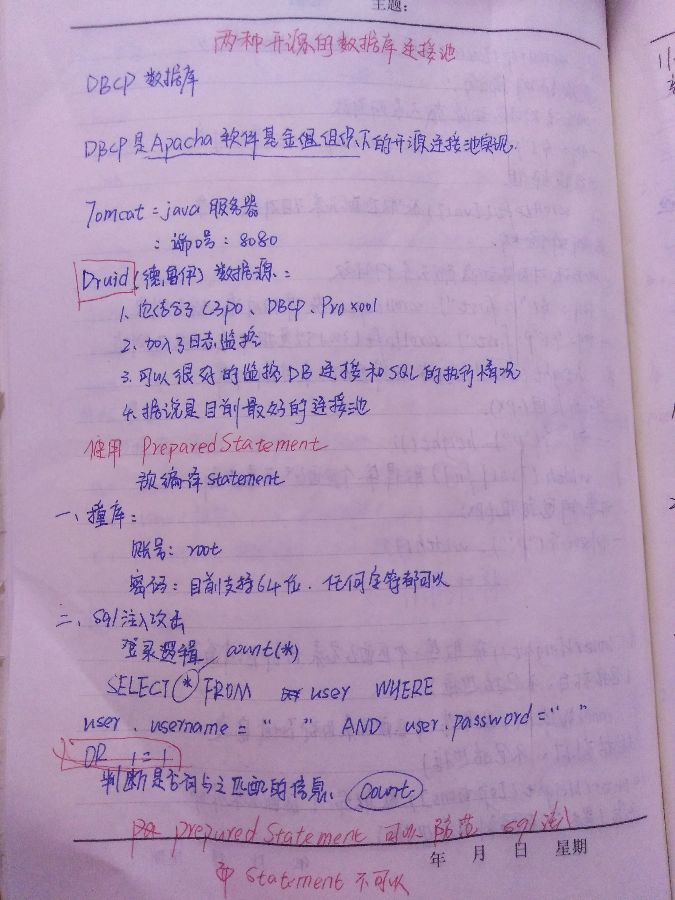 主题:
两种开源的数据库连接池
DBCP 数据库
DBCP是Apacha 软件基金会组织下的开源连接池实现.
Tomcat = java 服务器
: 端口号 : 8080
Druid (德鲁伊) 数据源 :
1. 包含了 C3P0、DBCP、Proxool
2. 加入了日志监控
3. 可以很好的监控DB连接和SQL的执行情况
4. 据说是目前最好的连接池
使用 PreparedStatement
预编译 statement
一、撞库:
账号: root
密码: 目前支持64位. 任何字符都可以
二、sql注入攻击
登录逻辑 count(*)
SELECT * FROM user WHERE
user . username = " " AND user.password = " "
OR 1 = 1
判断是否有与之匹配的信息. count
preparedStatement 可以防范 sql注入
年 月 日 星期
而 Statement 不可以